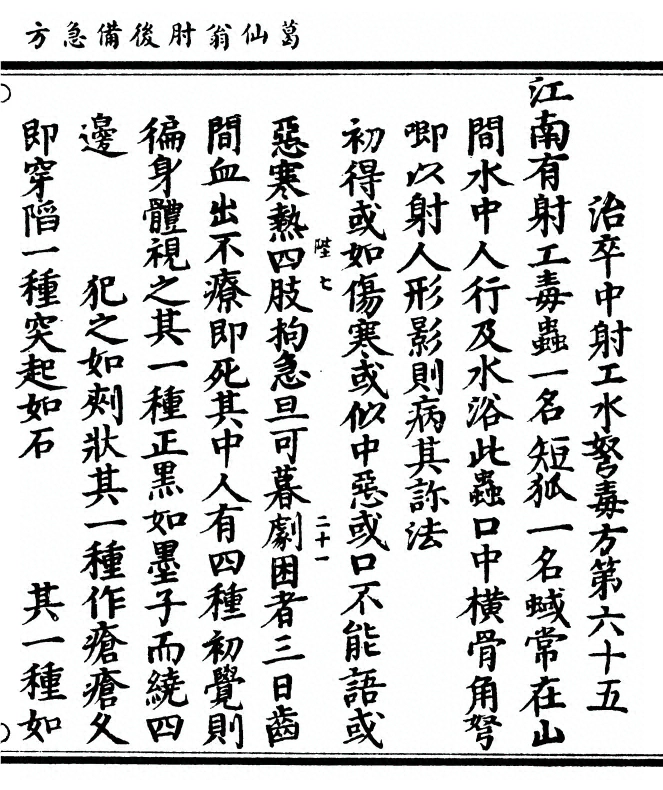 葛仙翁肘後備急方
治卒中射工水弩毒方第六十五
江南有射工毒蟲一名短狐一名蜮常在山
間水中人行及水浴此蟲口中橫骨角弩
唧以射人形影則病其診法
初得或如傷寒或似中惡或口不能語或
陞七　二十一
惡寒熱四肢拘急旦可暮劇困者三日齒
間血出不療即死其中人有四種初覺則
徧身體視之其一種正黑如墨子而繞四
邊　　　犯之如刺狀其一種作瘡瘡久
即穿陷一種突起如石　　　其一種如